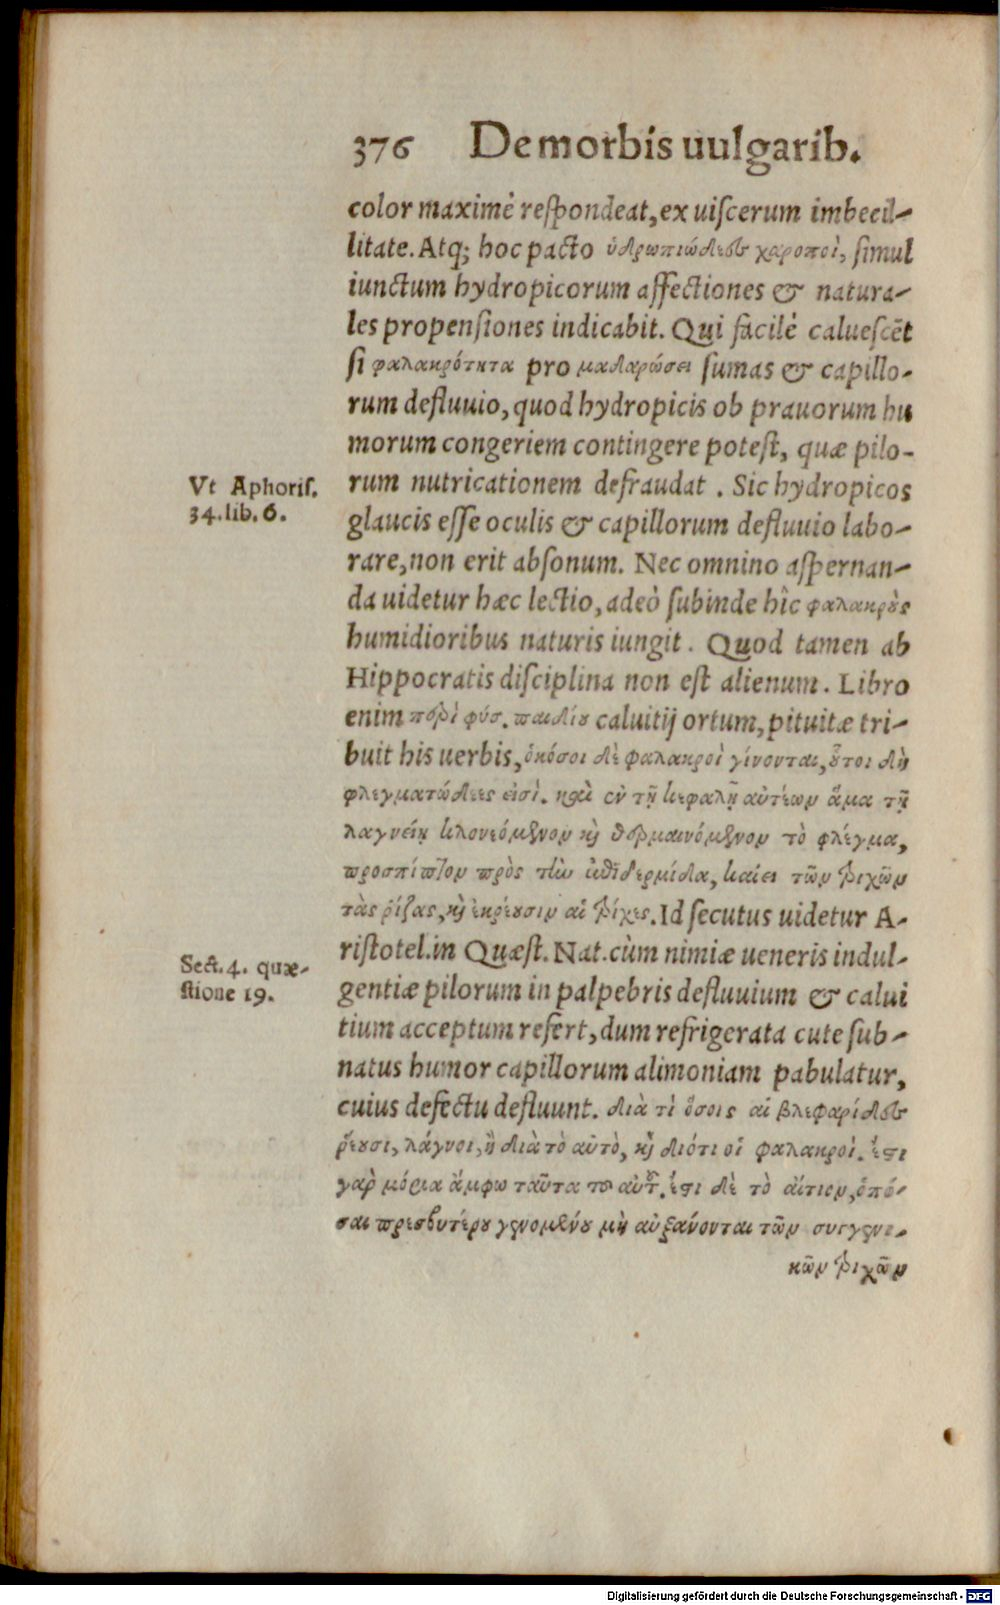 376 De morbis uulgarib.
color maximè reſpondeat, ex uiſcerum imbecil-
litate. Atq; hoc pacto ὑδρωπιώδεες χαροποὶ, ſimul
iunctum hydropicorum affectiones & natura-
les propenſiones indicabit. Qui facilè calueſcēt
ſi φαλακρότητα pro μαδαρώσει ſumas & capillo-
rum defluuio, quod hydropicis ob prauorum hu
morum congeriem contingere poteſt, quæ pilo-
Vt Aphoriſ.
34. lib. 6.
rum nutricationem defraudat. Sic hydropicos
glaucis eſſe oculis & capillorum defluuio labo-
rare, non erit abſonum. Nec omnino aſpernan-
da uidetur hæc lectio, adeò ſubinde hîc φαλακροὺς
humidioribus naturis iungit. Quod tamen ab
Hippocratis diſciplina non eſt alienum. Libro
enim περὶ φύσ. παιδίου caluitij ortum, pituitæ tri-
buit his uerbis, ὁκόσοι δὲ φαλακροὶ γίνονται, οὗτοι δὴ
φλεγματώδεες εἰσί. καὶ ἐν τῇ κεφαλῇ αὐτέων ἅμα τῇ
λαγνείῃ κλονεόμενον καὶ θερμαινόμενον τὸ φλέγμα,
προσπίπτον πρὸς τὴν ἐπιδερμίδα, καίει τῶν τριχῶν
τὰς ῥίζας, καὶ ἐκρέουσιν αἱ τρίχες. Id ſecutus uidetur A-
Sect. 4. quæ-
ſtione 19.
riſtotel. in Quæſt. Nat. cùm nimiæ ueneris indul-
gentiæ pilorum in palpebris defluuium & calui
tium acceptum refert, dum refrigerata cute ſub-
natus humor capillorum alimoniam pabulatur,
cuius defectu defluunt. διὰ τὶ ὅσοις αἱ βλεφαρίδες
ῥέουσι, λάγνοι, ἢ διὰ τὸ αὐτὸ, καὶ διότι οἱ φαλακροί. ἔστι
γὰρ μόρια ἄμφω ταῦτα τοῦ αὐτοῦ. ἔστι δὲ τὸ αἴτιον, ὁπό-
σαι πρεσβυτέρου γενομένου μὴ αὐξάνονται τῶν συγγενι-
κῶν τριχῶν
Digitalisierung gefördert durch die Deutsche Forschungsgemeinschaft - DFG